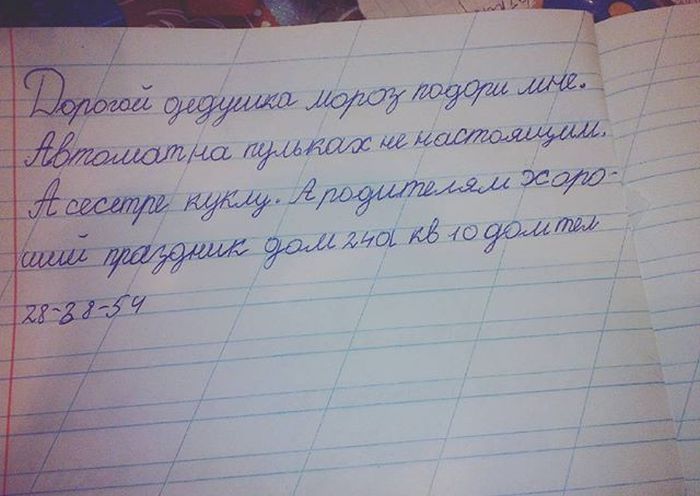 Дорогой дедушка мороз подори мне.
Автомат на пульках не настоящим.
А сестре куклу. А родителям хоро-
ший праздник дом 24а кв 10 дом тел
28-38-54